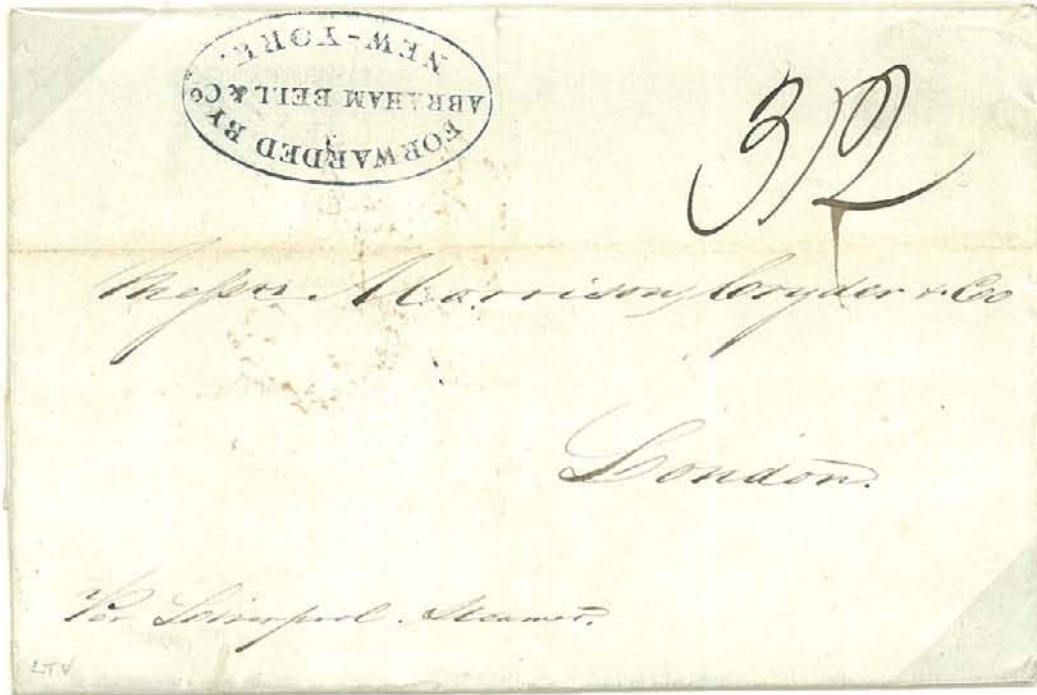 FORWARDED BY
ABRAHAM BELL & Co
NEW-YORK.
3/2
Messrs Morrison, Cryder & Co
London.
Per Liverpool. Steamer.
LTV